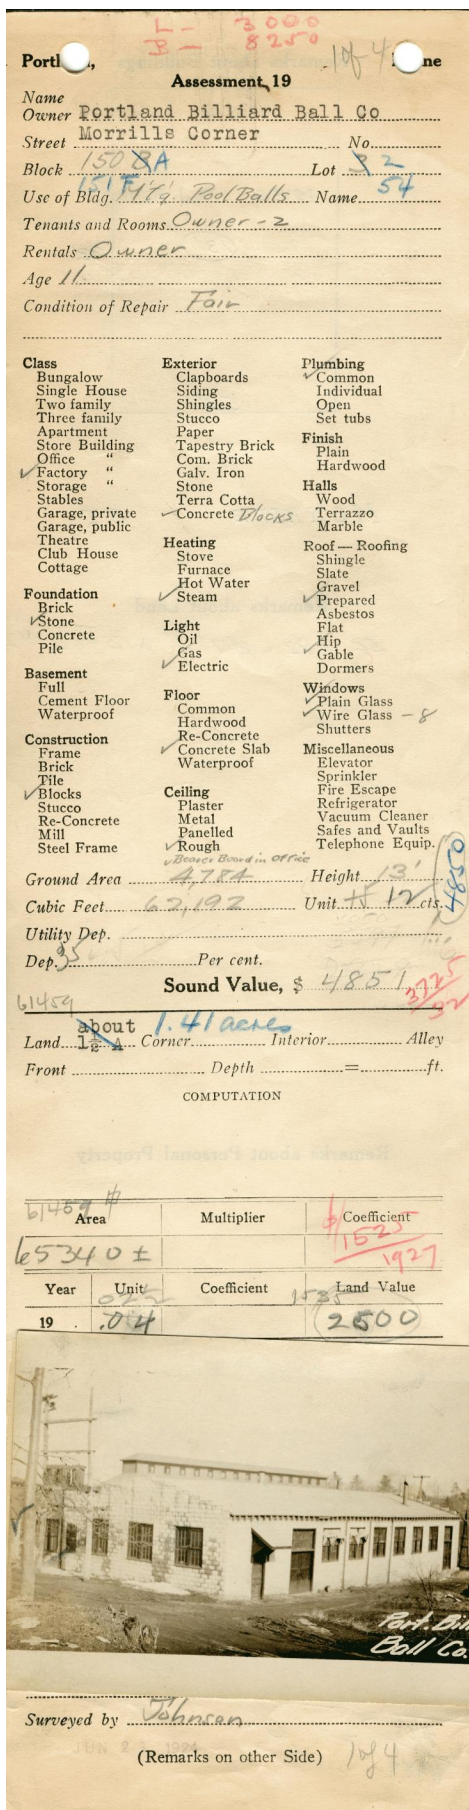 L - 3000
B - 8250
1 of 4
Portland, Maine
Assessment, 19
Name
Owner Portland Billiard Ball Co
Street Morrills Corner No.
Block 150 B A Lot 3 2
151 F 54
Use of Bldg. M'f'g Pool Balls Name
Tenants and Rooms Owner - 2
Rentals Owner
Age 11
Condition of Repair Fair
Class
Bungalow
Single House
Two family
Three family
Apartment
Store Building
Office "
✓ Factory "
Storage "
Stables
Garage, private
Garage, public
Theatre
Club House
Cottage
Foundation
Brick
✓ Stone
Concrete
Pile
Basement
Full
Cement Floor
Waterproof
Construction
Frame
Brick
Tile
✓ Blocks
Stucco
Re-Concrete
Mill
Steel Frame
Exterior
Clapboards
Siding
Shingles
Stucco
Paper
Tapestry Brick
Com. Brick
Galv. Iron
Stone
Terra Cotta
✓ Concrete Blocks
Heating
Stove
Furnace
Hot Water
✓ Steam
Light
Oil
Gas
✓ Electric
Floor
Common
Hardwood
Re-Concrete
✓ Concrete Slab
Waterproof
Ceiling
Plaster
Metal
Panelled
✓ Rough
✓ Beaver Board in office
Plumbing
✓ Common
Individual
Open
Set tubs
Finish
Plain
Hardwood
Halls
Wood
Terrazzo
Marble
Roof — Roofing
Shingle
Slate
Gravel
✓ Prepared
Asbestos
Flat
✓ Hip
Gable
Dormers
Windows
✓ Plain Glass
✓ Wire Glass - 8
Shutters
Miscellaneous
Elevator
Sprinkler
Fire Escape
Refrigerator
Vacuum Cleaner
Safes and Vaults
Telephone Equip.
Ground Area 4,784 Height 13'
4850
Cubic Feet 62,192 Unit 12 cts.
Utility Dep.
Dep. 35 Per cent.
Sound Value, $ 4851
3725
52
61459
about 1.41 acres
Land 1½ A Corner Interior Alley
Front Depth = ft.
COMPUTATION
61459
Area Multiplier Coefficient
65340 ± 1525
1927
Year Unit Coefficient Land Value
1535
19 .04 2600
Port. Bill
Ball Co.
Surveyed by Johnson
(Remarks on other Side) 1 of 4